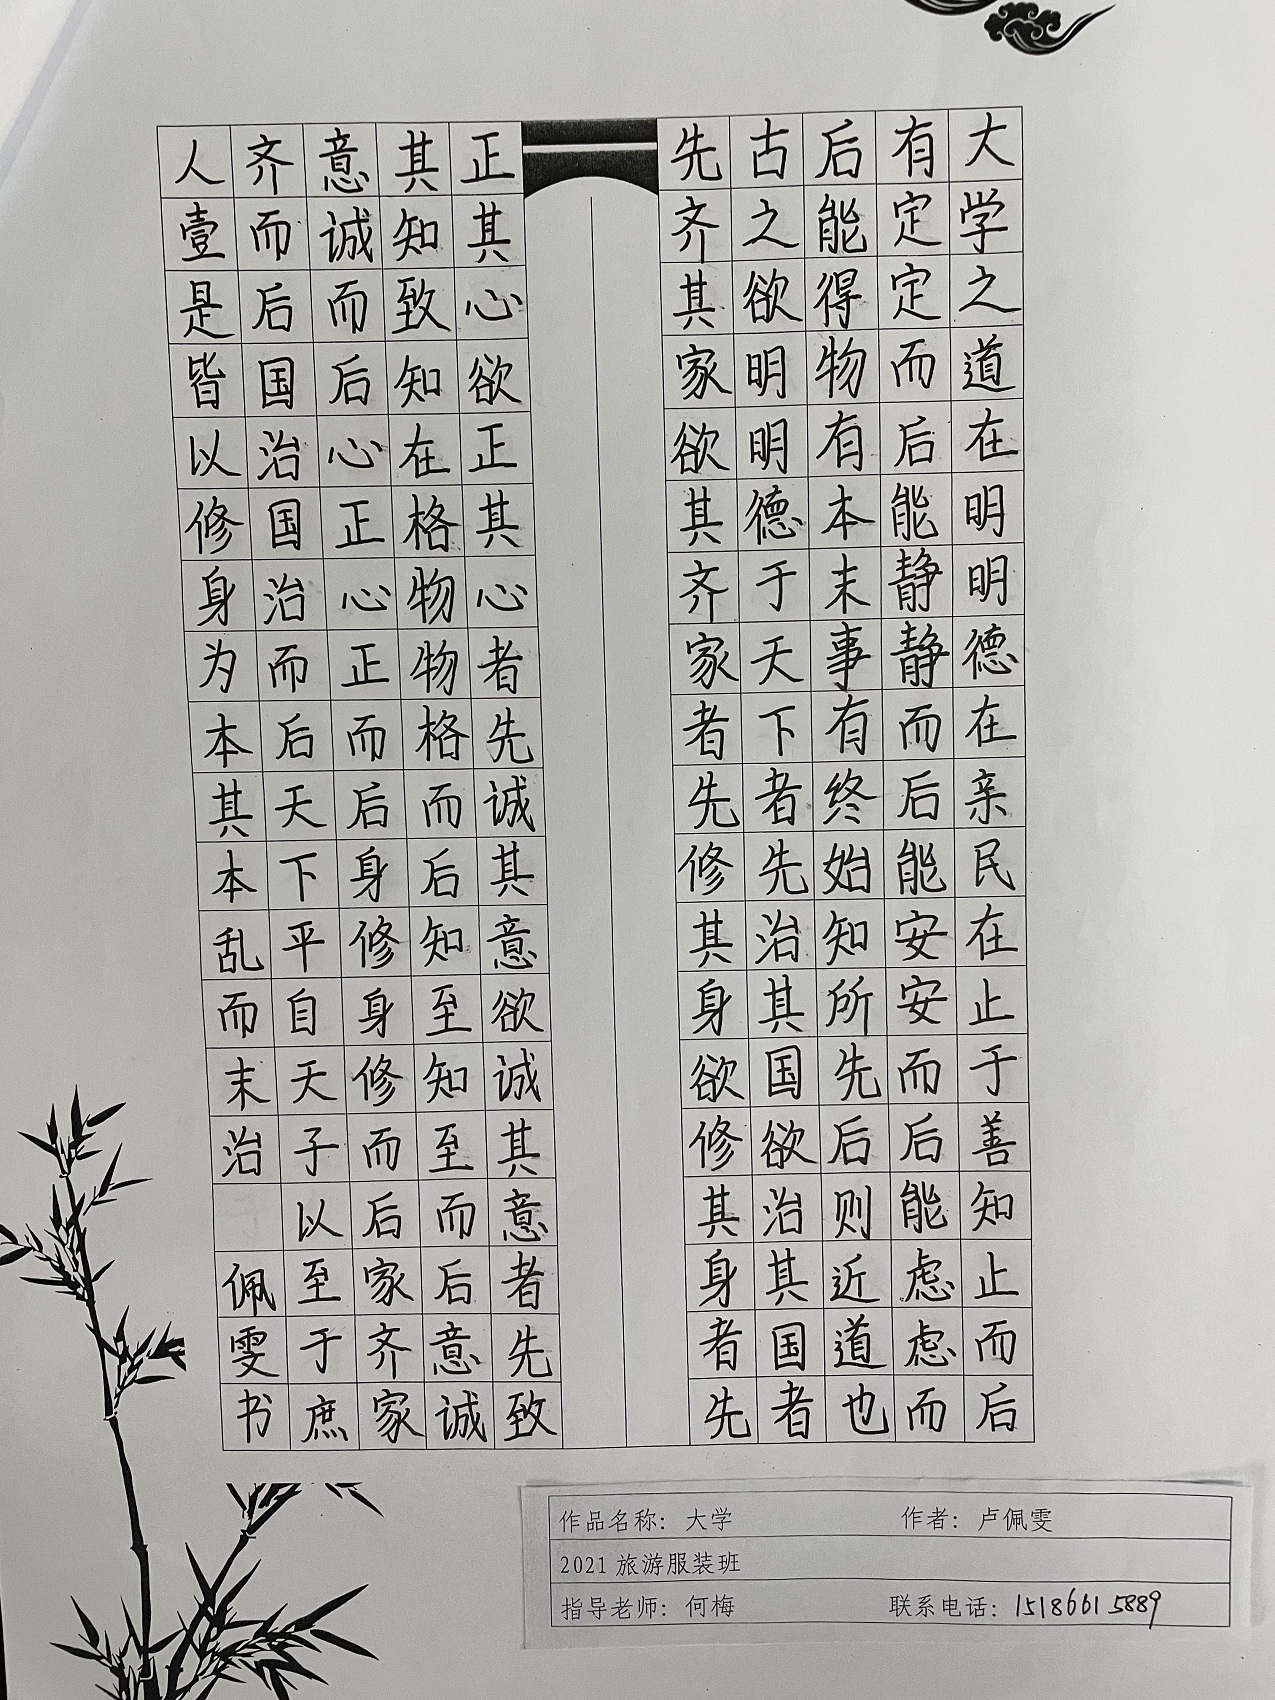 大学之道在明明德在亲民在止于善知止而后
有定定而后能静静而后能安安而后能虑虑而
后能得物有本末事有终始知所先后则近道也
古之欲明明德于天下者先治其国欲治其国者
先齐其家欲其齐家者先修其身欲修其身者先
正其心欲正其心者先诚其意欲诚其意者先致
其知致知在格物物格而后知至知至而后意诚
意诚而后心正心正而后身修身修而后家齐家
齐而后国治国治而后天下平自天子以至于庶
人壹是皆以修身为本其本乱而末治 佩雯书
作品名称：大学 作者：卢佩雯
2021 旅游服装班
指导老师：何梅 联系电话：15186615889